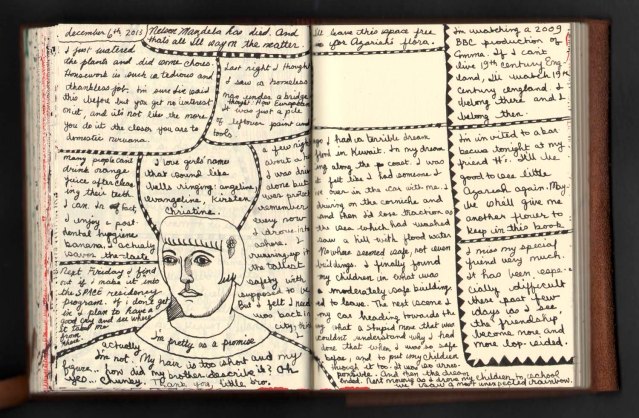 december 6th 2013
I just watered
the plants and did some chores.
Housework is such a tedious and
thankless job. I'm sure I've said
this before but you get no interest
on it, and it's not like the more
you do it the closer you are to
domestic nirvana.
Nelson Mandela has died. And
thats all I'll say on the matter.
Last night I thought
I saw a homeless
man under a bridge
thought: How European
It was just a pile
of leftover paint
tools.
many people can't
drink orange
juice after clean
ing their teeth.
I can. In fact,
I enjoy a post-
dental hygiene
banana. I actually
savor the taste
I love girls' names
that sound like
bells ringing: angelina,
evangeline, kirsten,
christine.
Next Friday I find
out if I make it into
the SPACE residency
program. If I don't get
in I plan to have a
good cry and see where
it takes me
from there.
I'm pretty as a promise
actually
I'm not. My hair is too short and my
figure... how did my brother describe it? Oh
yes... chunky. Thank you, little bro.
a few nights
about a
I was driving
alone but
was
remember
every now
I drove into
ashore. I
running up it
the tallest
safety with
But I felt I need
was back in
city
I'll leave this space free
for Azariah's flora.
ago I had a terrible dream
flood in Kuwait. In my dream
along the coast I was
it felt like I had someone I
over in the car with me. I
driving on the corniche and
and then I'd lose traction as
the sea which had washed
saw a hill with flood water
Nowhere seemed safe, not even
buildings. I finally found
my children in what was
a moderately safe building
ed to leave. The next scene I
my car heading towards the
what a stupid move that was
couldn't understand why I had
done that when I was so safe
before, and to put my children
through it too. It was so irres-
ponsible. And then the dream
ended. Next morning as I drove my children to school
we saw a most unexpected rainbow.
I'm watching a 2009
BBC production of
Emma. If I can't
live 19th century Eng-
land, I'll watch 19th
century England. I
belong there and I
belong then.
I'm invited to a bar
becue tonight at my
friend H's. It'll be
good to see little
Azariah again. May-
be she'll give me
another flower to
keep in this book.
I miss my special
friend very much.
It has been espe-
cially difficult
these past few
days as I see
the friendship
become more and
more lop-sided.